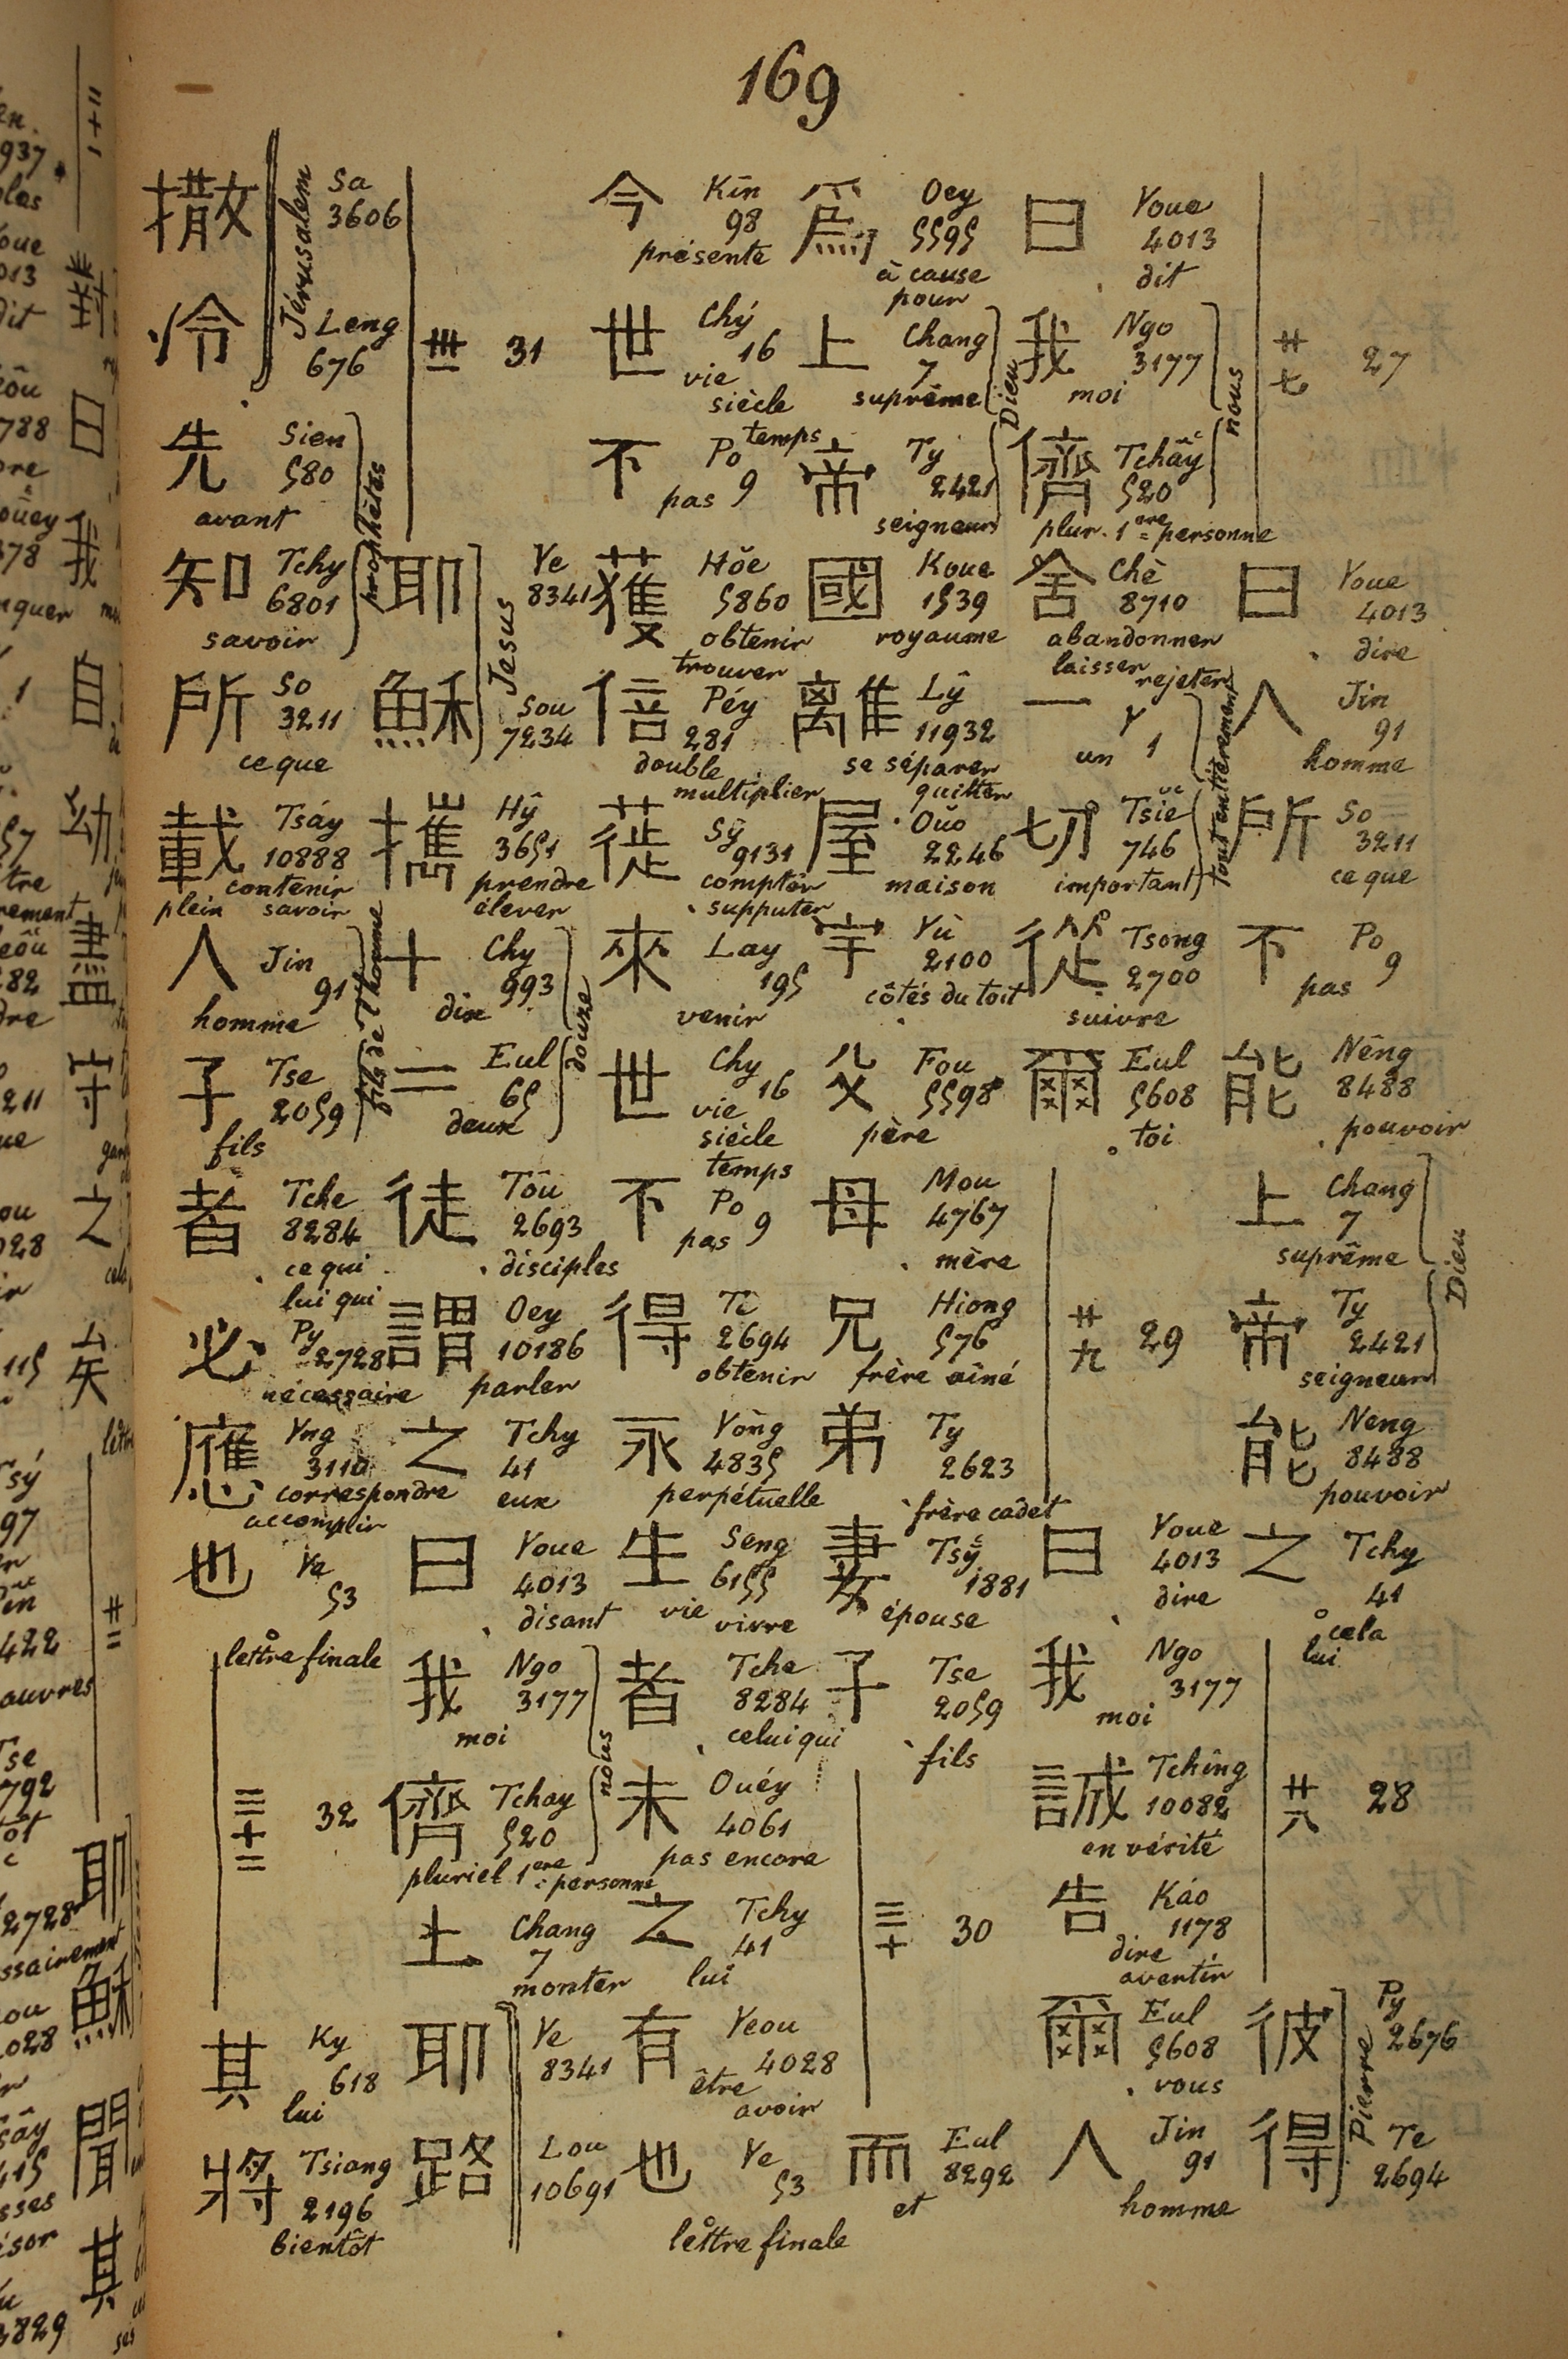 169
廿七 27
曰 Youe 4013 dire
人 Jin 91 homme
所 So 3211 ce que
不 Po 9 pas
能 Nêng 8488 pouvoir
上 Chang 7 suprême
帝 Ty 2421 seigneur
Dieu
能 Neng 8488 pouvoir
之 Tchy 41 cela lui
廿八 28
彼 Py 2676
得 Te 2694
Pierre
曰 Youe 4013 dit
我 Ngo 3177 moi
儕 Tchấy 520 plur. 1ère personne
nous
舍 Chè 8710 abandonner laisser rejeter
一 Y 1 un
切 Tsie 746 important
tout entièrement
從 Tsong 2700 suivre
爾 Eul 5608 toi
廿九 29
曰 Youe 4013 dire
我 Ngo 3177 moi
誠 Tchîng 10082 en vérité
告 Káo 1178 dire avertir
爾 Eul 5608 vous
人 Jin 91 homme
爲 Oey 5595 à cause pour
上 Chang 7 suprême
帝 Ty 2421 seigneur
Dieu
國 Koue 1539 royaume
離 Lŷ 11932 se séparer quitter
屋 Oŭo 2246 maison
宇 Yù 2100 côtés du toit
父 Fou 5598 père
母 Mou 4767 mère
兄 Hiong 576 frère aîné
弟 Ty 2623 frère cadet
妻 Tsy 1881 épouse
子 Tse 2059 fils
三十 30
而 Eul 8292 et
今 Kin 98 présente
世 Chý 16 vie siècle temps
不 Po 9 pas
獲 Hŏe 5860 obtenir trouver
倍 Péy 281 double multiplier
蓰 Sỳ 9131 compter supputer
來 Lay 195 venir
世 Chy 16 vie siècle temps
不 Po 9 pas
得 Te 2694 obtenir
永 Yòng 4835 perpétuelle
生 Seng 6155 vie vivre
者 Tche 8284 celui qui
未 Ouéy 4061 pas encore
之 Tchy 41 lui
有 Yeou 4028 être avoir
也 Ye 53 lettre finale
卅一 31
耶 Ye 8341
穌 Sou 7234
Jesus
攜 Hŷ 3651 prendre élever
十 Chy 993 dix
二 Eul 65 deux
douze
徒 Tôu 2693 disciples
謂 Oey 10186 parler
之 Tchy 41 eux
曰 Youe 4013 disant
我 Ngo 3177 moi
儕 Tchay 520 pluriel 1ère personne
nous
上 Chang 7 monter
耶 Ye 8341
路 Lou 10691
撒 Sa 3606
冷 Leng 676
Jérusalem
先 Sien 580 avant
知 Tchy 6801 savoir
prophètes
所 So 3211 ce que
載 Tsáy 10888 contenir plein savoir
人 Jin 91 homme
子 Tse 2059 fils
fils de l'homme
者 Tche 8284 ce qui lui qui
必 Py 2728 nécessaire
應 Yng 3110 correspondre accomplir
也 Ye 53 lettre finale
三十二 32
其 Ky 618 lui
將 Tsiang 2196 bientôt